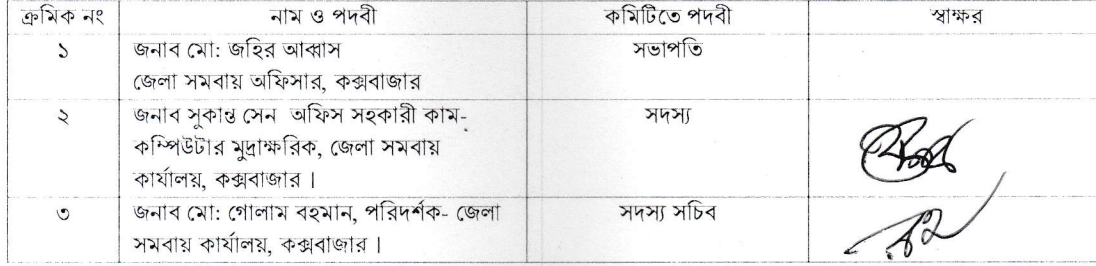 ক্রমিক নং নাম ও পদবী কমিটিতে পদবী স্বাক্ষর
১ জনাব মো: জহির আব্বাস সভাপতি
জেলা সমবায় অফিসার, কক্সবাজার
২ জনাব সুকান্ত সেন অফিস সহকারী কাম- সদস্য
কম্পিউটার মুদ্রাক্ষরিক, জেলা সমবায়
কার্যালয়, কক্সবাজার ।
৩ জনাব মো: গোলাম বহমান, পরিদর্শক- জেলা সদস্য সচিব
সমবায় কার্যালয়, কক্সবাজার ।